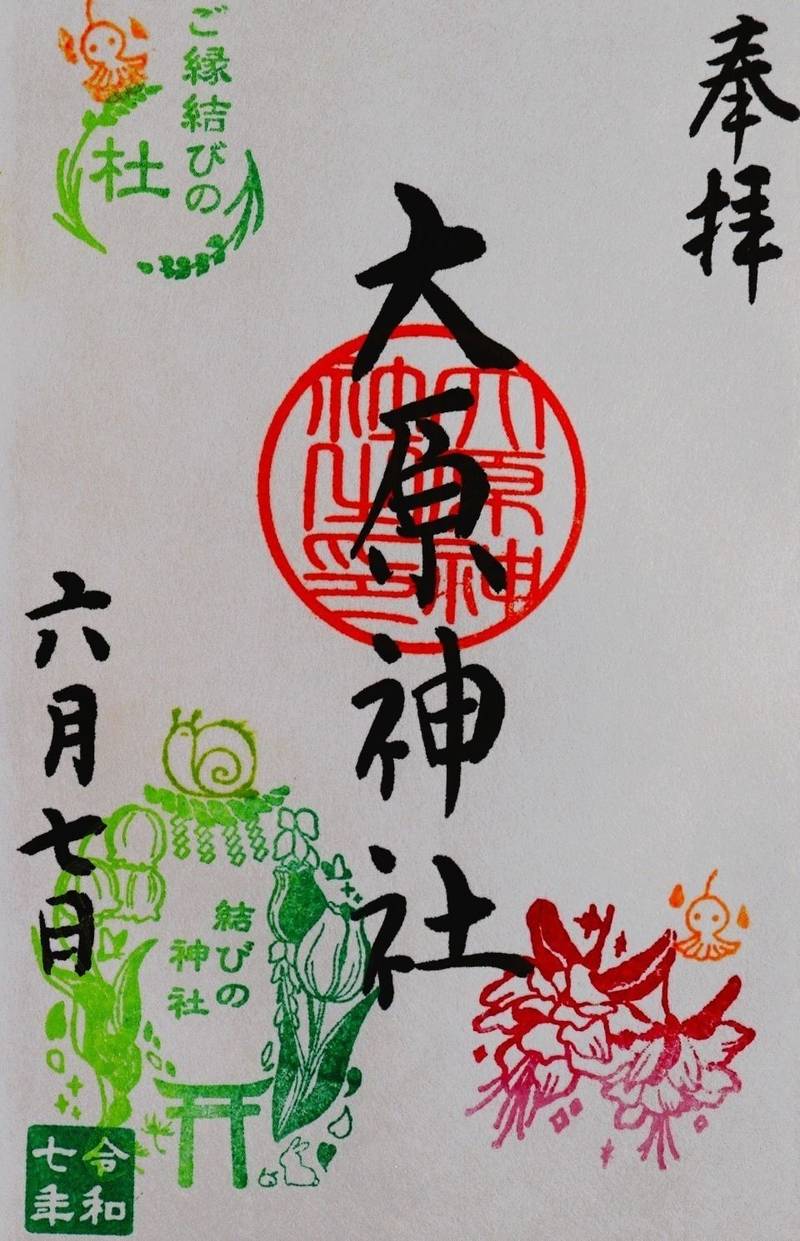 奉拝
大原神社
大原神
社之印
ご縁結びの
杜
六月七日
結びの
神社
令和
七年